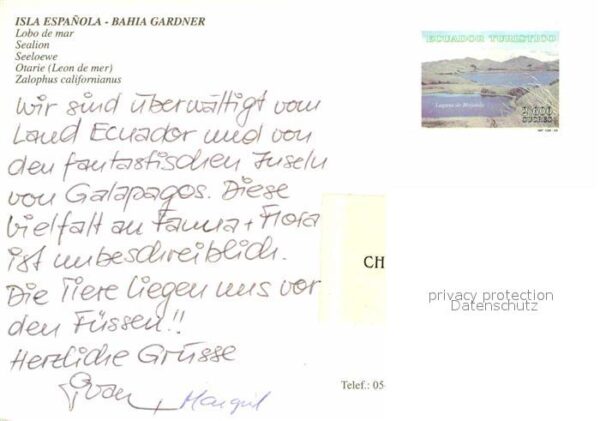 ISLA ESPAÑOLA - BAHIA GARDNER
Lobo de mar
Sealion
Seeloewe
Otarie (Leon de mer)
Zalophus californianus
Wir sind überwältigt vom
Land Ecuador und von
den fantastischen Inseln
von Galapagos. Diese
Vielfalt an Fauna + Flora
ist unbeschreiblich.
Die Tiere liegen uns vor
den Füssen!!
Herzliche Grüsse
ECUADOR TURISTICO
Laguna de Mojanda
SUCRES
CH
privacy protection
Datenschutz
Telef.: 05-